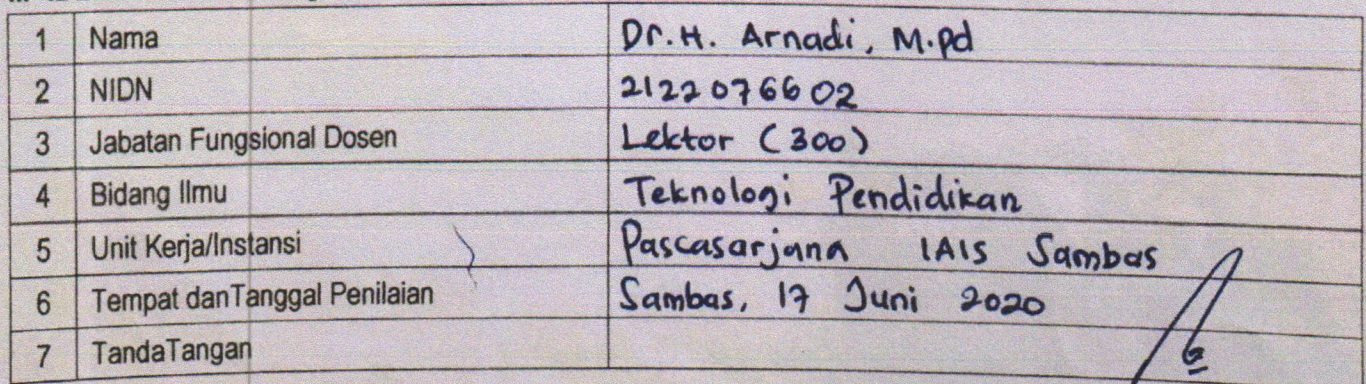 1 Nama Dr. H. Arnadi, M.pd
2 NIDN 2122076602
3 Jabatan Fungsional Dosen Lektor (300)
4 Bidang Ilmu Teknologi Pendidikan
5 Unit Kerja/Instansi Pascasarjana IAIS Sambas
6 Tempat danTanggal Penilaian Sambas, 17 Juni 2020
7 TandaTangan